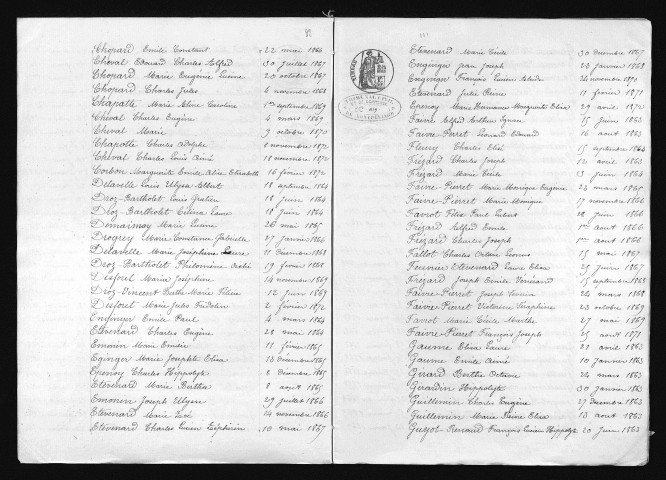 82
Chopard Emile Constant 22 mai 1866
Cheval Edouard Charles Alfred 30 juillet 1867
Chopard Marie Eugénie Lucine 20 octobre 1867
Chopard Charles Jules 4 novembre 1868
Chapatte Marie Aline Caroline 1er septembre 1869
Cheval Charles Eugène 4 mars 1869
Cheval Marie 9 octobre 1870
Chapotte Charles Adolphe 8 novembre 1872
Cheval Charles Louis Aimé 18 novembre 1872
Corbon Marguerite Emilie Alice Elisabeth 16 février 1872
Delavelle Louis Ulysse Albert 18 septembre 1864
Droz-Bartholet Louis Gratien 18 juin 1864
Droz-Bartholet Célina Laure 18 juin 1864
Domainoy Marie Lucine 26 mai 1865
Drogrey Marie Constance Gabrielle 27 janvier 1866
Delavelle Marie Joséphine Laure 11 Décembre 1868
Droz-Bartholet Philomène 19 février 1868
Disforet Marie Joséphine 14 novembre 1869
Droz-Vincent Berthe Marie Félicie 12 juin 1869
Disforet Marie Jules Fridolin 2 février 1872
Enginger Emile Paul 4 mars 1864
Etevenard Charles Eugène 28 mai 1864
Emonin Marie Emilie 11 février 1865
Eginger Marie Josephte Elisa 23 Décembre 1865
Epenoy Charles Hippolyte 8 Décembre 1865
Etevenard Marie Bertha 8 août 1865
Emonin Joseph Ulysse 29 juillet 1866
Etévenard Marie 14 novembre 1866
Etévenard Charles Lucien Zéphirin 10 mai 1867
Etévenard Marie Cécile 30 décembre 1867
Enginger Jean Joseph 23 janvier 1868
Enginger François Lucien Alcide 26 novembre 1870
Etévenard Julie Reine 11 février 1871
Epenoy Marie Hermance Marguerite Elisa 29 avril 1872
Faivre Alfred Arthur 15 juin 1863
Faivre-Perret Léonard Edouard 16 août 1863
Fleury Charles Elisé 15 septembre 1864
Frézard Charles Joseph 12 avril 1863
Frézard Marie Cécile 13 juin 1864
Faivre-Pierret Marie Monique Eugénie 23 mars 1865
Faivre-Pierret Marie Monique 17 novembre 1866
Farvot Félix Paul 28 juin 1866
Frézard Alfred Emile 1er août 1866
Frézard Charles Joseph 1er août 1866
Fallot Charles Octave 15 mai 1867
Ferreux Etevenard Laure Elisa 25 juin 1867
Frézard Joseph Emile 15 septembre 1868
Faivre-Pierret Joseph 24 mars 1868
Faivre-Pierret Victorine Séraphine 23 octobre 1869
Farvot Marie Cécile Marthe 27 mai 1869
Faivre-Pierret François Joseph 25 août 1871
Gaume Elisa Laure 21 avril 1863
Gaume Emile Aimé 10 janvier 1863
Girard Berthe Octavie 24 mars 1863
Girardin Hippolyte 30 janvier 1863
Guillemin Charles Eugène 27 Décembre 1863
Guillemin Marie Reine Elisa 13 août 1863
Guyot-Renaud François Lucien Hippolyte 20 juin 1863